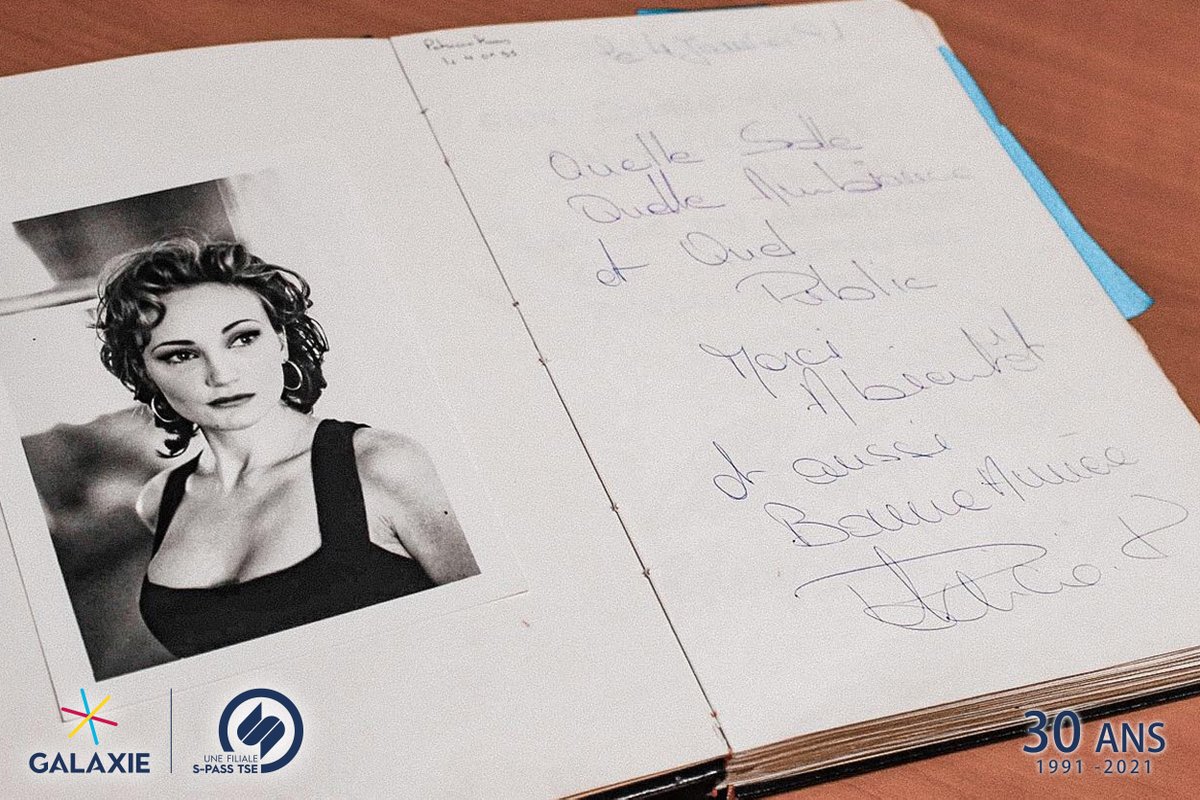 Patricia Kaas
Quelle Salle
Quelle Ambiance
et Quel
Public
Merci
A bientôt
et aussi
Bonne Année
Patricia. K
GALAXIE
UNE FILIALE
S-PASS TSE
30 ANS
1991 -2021